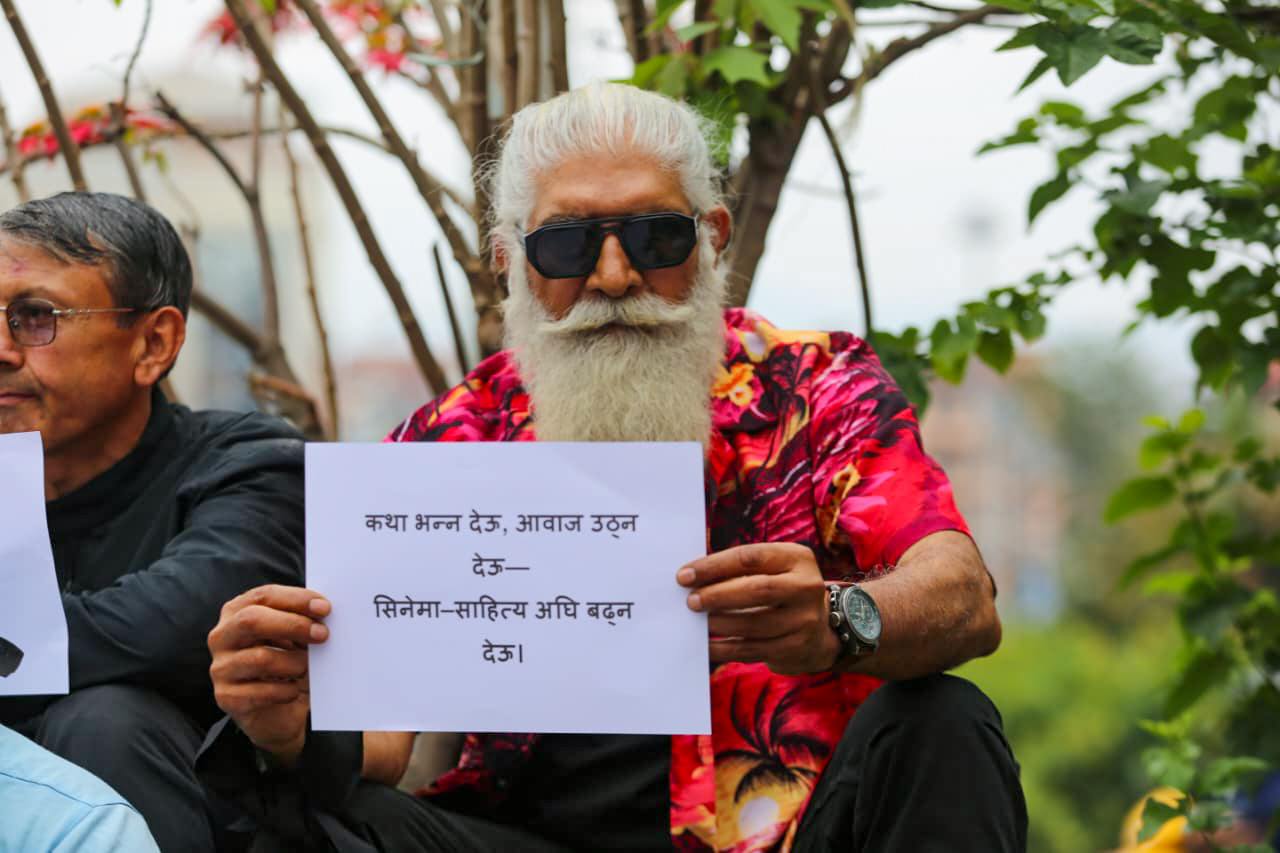 कथा भन्न देऊ, आवाज उठ्न
देऊ—
सिनेमा–साहित्य अघि बढ्न
देऊ।